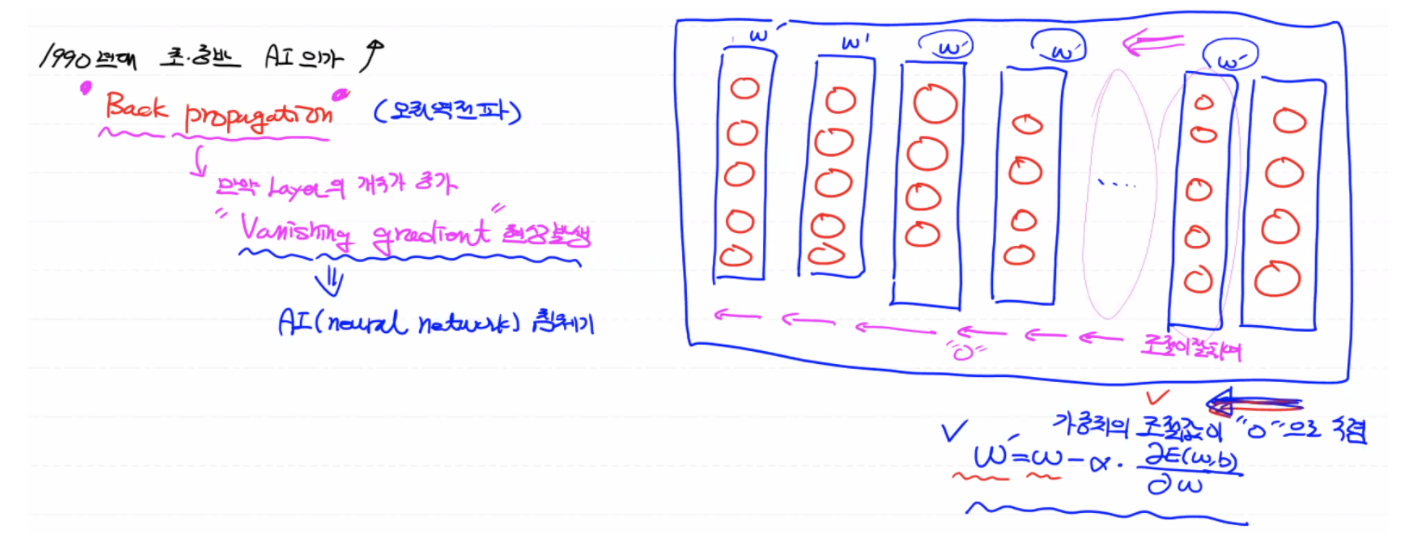 1990년대 초·중반 AI 의가 ↑
"Back propagation" (오차역전파)
만약 Layer의 개수가 증가
"Vanishing gradient" 현상발생
AI(neural network) 침체기
w′ w′ w′ w′ w′
....
"0" 조절이 잘되며
가중치의 조절값이 "0"으로 수렴
w′=w-α·∂E(w,b)/∂w